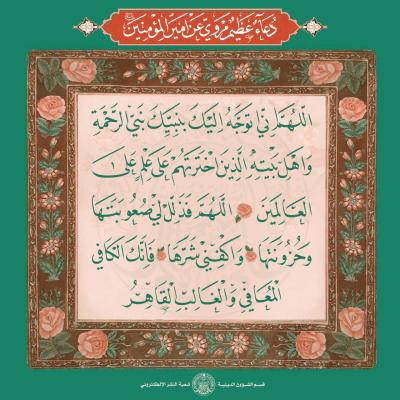 دُعَاءٌ عَظِيمٌ مَرْوِيٌّ عَنْ أَمِيرِ الْمُؤْمِنِينَ
اللّٰهُمَّ إِنِّي أَتَوَجَّهُ إِلَيْكَ بِنَبِيِّكَ نَبِيِّ الرَّحْمَةِ
وَأَهْلِ بَيْتِهِ الَّذِينَ اخْتَرْتَهُمْ عَلَى عِلْمٍ عَلَى
الْعَالَمِينَ اللّٰهُمَّ فَذَلِّلْ لِي صُعُوبَتَهَا
وَحُزُونَتَهَا وَاكْفِنِي شَرَّهَا فَإِنَّكَ الْكَافِي
الْمُعَافِي وَالْغَالِبُ الْقَاهِرُ
قسم الشؤون الدينية شعبة النشر الالكتروني